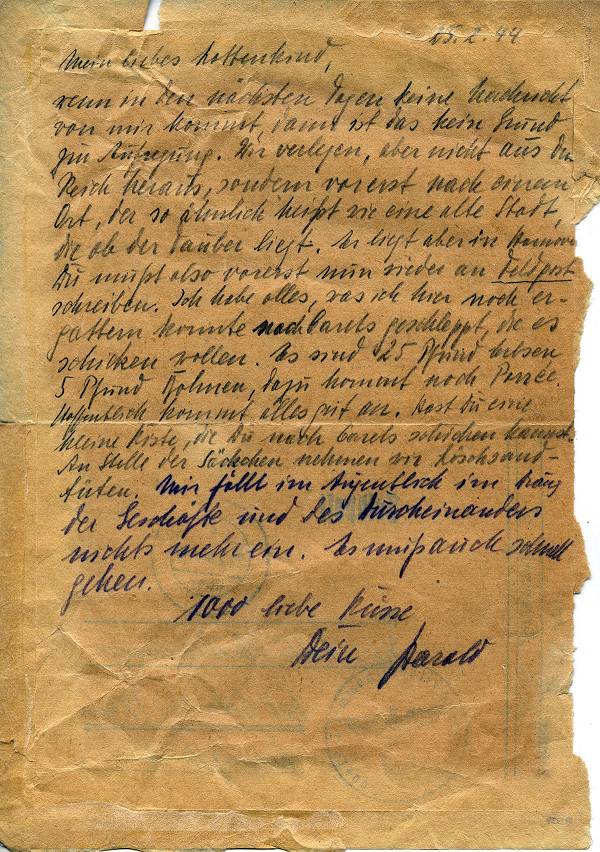 25. 2. 44
Mein liebes Lottenkind,
wenn in den nächsten Tagen keine Nachricht
von mir kommt, dann ist das kein Grund
zu Aufregung. Wir verlegen, aber nicht aus dem
Reich heraus, sondern vorerst nach einem
Ort, der so ähnlich heißt wie eine alte Stadt,
die ob der Tauber liegt. Er liegt aber in Hannover
Du mußt also vorerst nun wieder an Feldpost
schreiben. Ich habe alles, was ich hier noch er-
gattern konnte nach geschleppt, die es
schicken wollen. Es sind 25 Pfund Erbsen
5 Pfund Bohnen, dazu kommt noch
Hoffentlich kommt alles gut an. Hast Du eine
kleine Kiste, die Du nach schicken kannst.
An Stelle der Säckchen nehmen wir Löschsand-
tüten. Mir fällt im Augenblick im Drang
der Geschäfte und des Durcheinanders
nichts mehr ein. Es muß auch schnell
gehen.
1000 liebe Küsse
Dein Harald